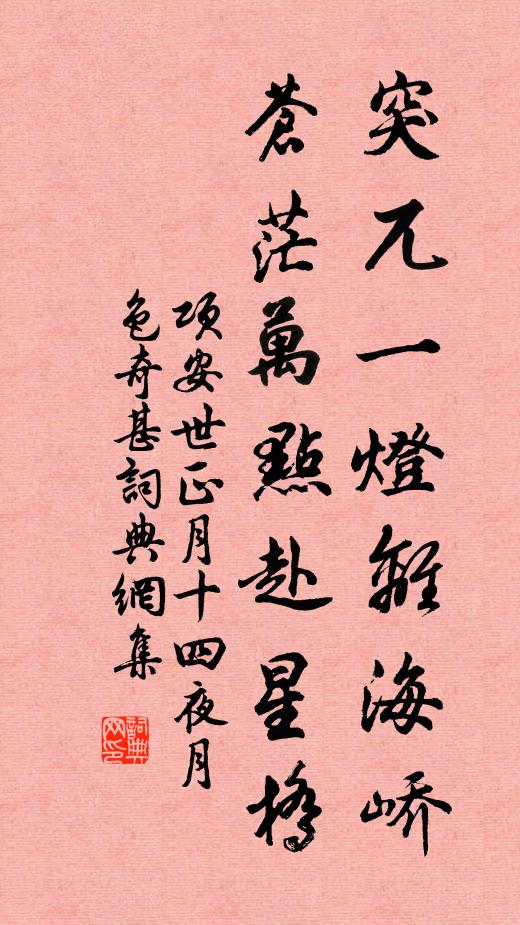 突兀一燈離海嶠
蒼茫萬點赴星橋
項安世正月十四夜月
色奇甚詞典網集
詞典網印